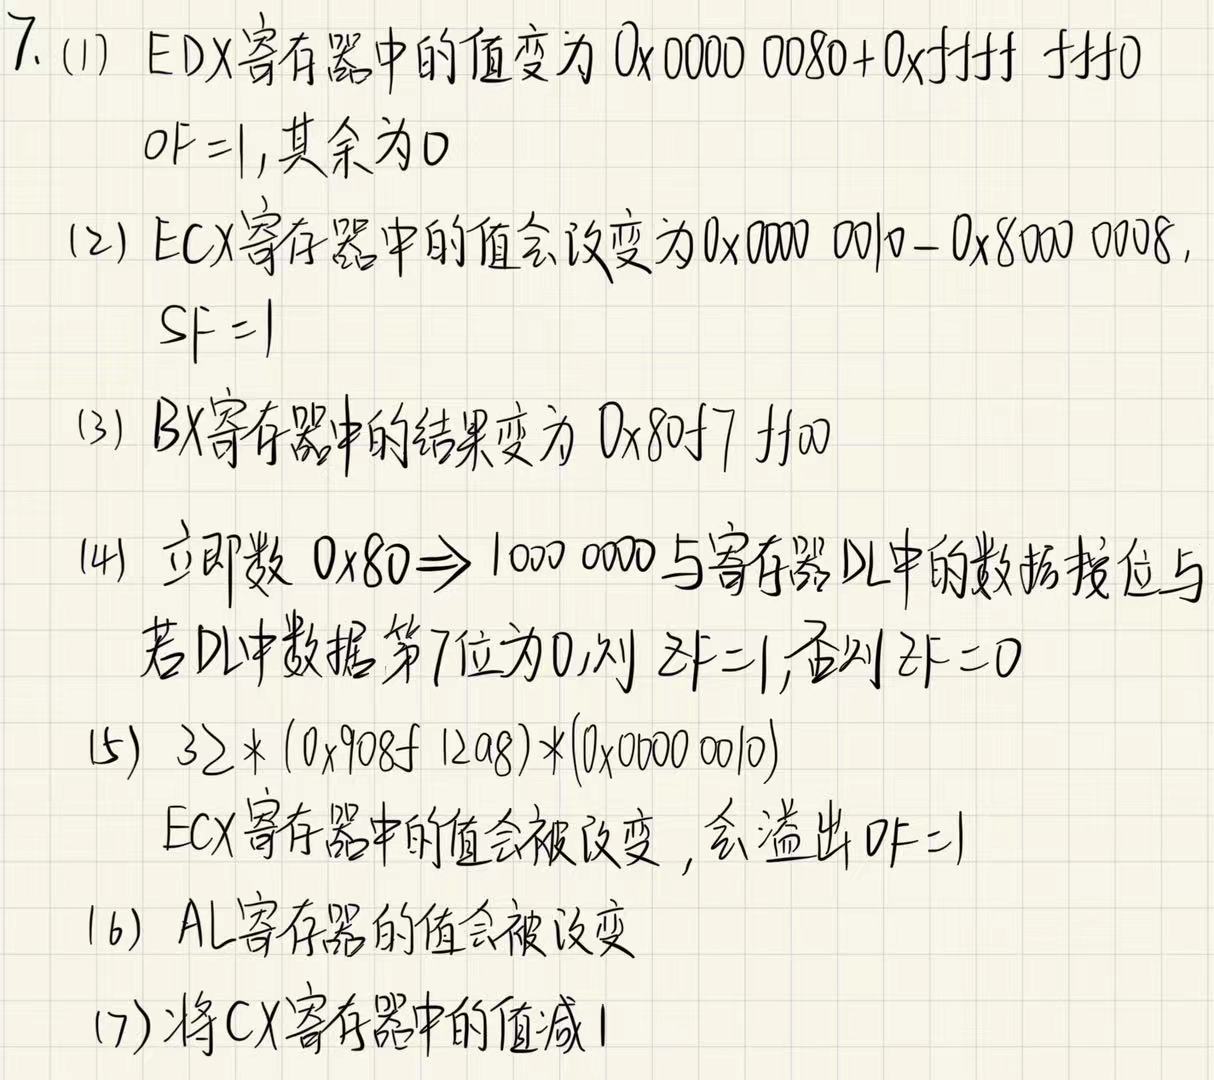 7. (1) EDX寄存器中的值变为 0x0000 0080+0xffff fff0
OF=1,其余为0
(2) ECX寄存器中的值会改变为0x0000 0010-0x8000 0008,
SF=1
(3) BX寄存器中的结果变为 0x80f7 ff00
(4) 立即数 0x80⇒1000 0000与寄存器DL中的数据按位与
若DL中数据第7位为0,则 ZF=1,否则 ZF=0
(5) 32*(0x908f 12a8)*(0x0000 0010)
ECX寄存器中的值会被改变,会溢出OF=1
(6) AL寄存器的值会被改变
(7)将CX寄存器中的值减1